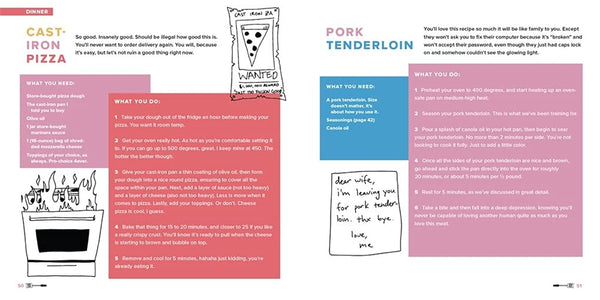 DINNER
CAST-
IRON
PIZZA
So good. Insanely good. Should be illegal how good this is.
You'll never want to order delivery again. You will, because
it's easy, but let's not ruin a good thing right now.
CAST IRON ZA
WANTED
WHAT YOU NEED:
Store-bought pizza dough
The cast-iron pan I
told you to buy
Olive oil
1 jar store-bought
marinara sauce
1 (16-ounce) bag of shred-
ded mozzarella cheese
Toppings of your choice, as
always. Pro-choice 4ever.
WHAT YOU DO:
1 Take your dough out of the fridge an hour before making your
pizza. You want it room temp.
2 Get your oven really hot. As hot as you're comfortable setting it
to. If you can go up to 500 degrees, great. I keep mine at 450. The
hotter the better though.
3 Give your cast-iron pan a thin coating of olive oil, then form
your dough into a nice round pizza, ensuring to cover all the
space within your pan. Next, add a layer of sauce (not too heavy)
and a layer of cheese (also not too heavy). Less is more when it
comes to pizza. Lastly, add your toppings. Or don't. Cheese
pizza is cool, I guess.
4 Bake that thing for 15 to 20 minutes, and closer to 25 if you like
a really crispy crust. You'll know it's ready to pull when the cheese
is starting to brown and bubble on top.
5 Remove and cool for 5 minutes, hahaha just kidding, you're
already eating it.
50
PORK
TENDERLOIN
You'll love this recipe so much it will be like family to you. Except
they won't ask you to fix their computer because it's "broken" and
won't accept their password, even though they just had caps lock
on and somehow couldn't see the glowing light.
WHAT YOU NEED:
A pork tenderloin. Size
doesn't matter. It's
about how you use it.
Seasonings (page 42)
Canola oil
WHAT YOU DO:
1 Preheat your oven to 400 degrees, and start heating up an oven-
safe pan on medium-high heat.
2 Season your pork tenderloin. This is what we've been training for.
3 Pour a splash of canola oil in your hot pan, then begin to sear
your pork tenderloin. No more than 2 minutes per side. You're not
looking to cook it fully. Just to add a little color.
4 Once all the sides of your pork tenderloin are nice and brown,
go ahead and stick the pan directly into the oven for roughly
20 minutes, or about 5 minutes per ½ pound.
5 Rest for 5 minutes, as we've discussed in great detail.
6 Take a bite and then fall into a deep depression, knowing you'll
never be capable of loving another human quite as much as you
love this meat.
dear wife,
i'm leaving you
for pork tender
loin. thx bye.
love,
me
51